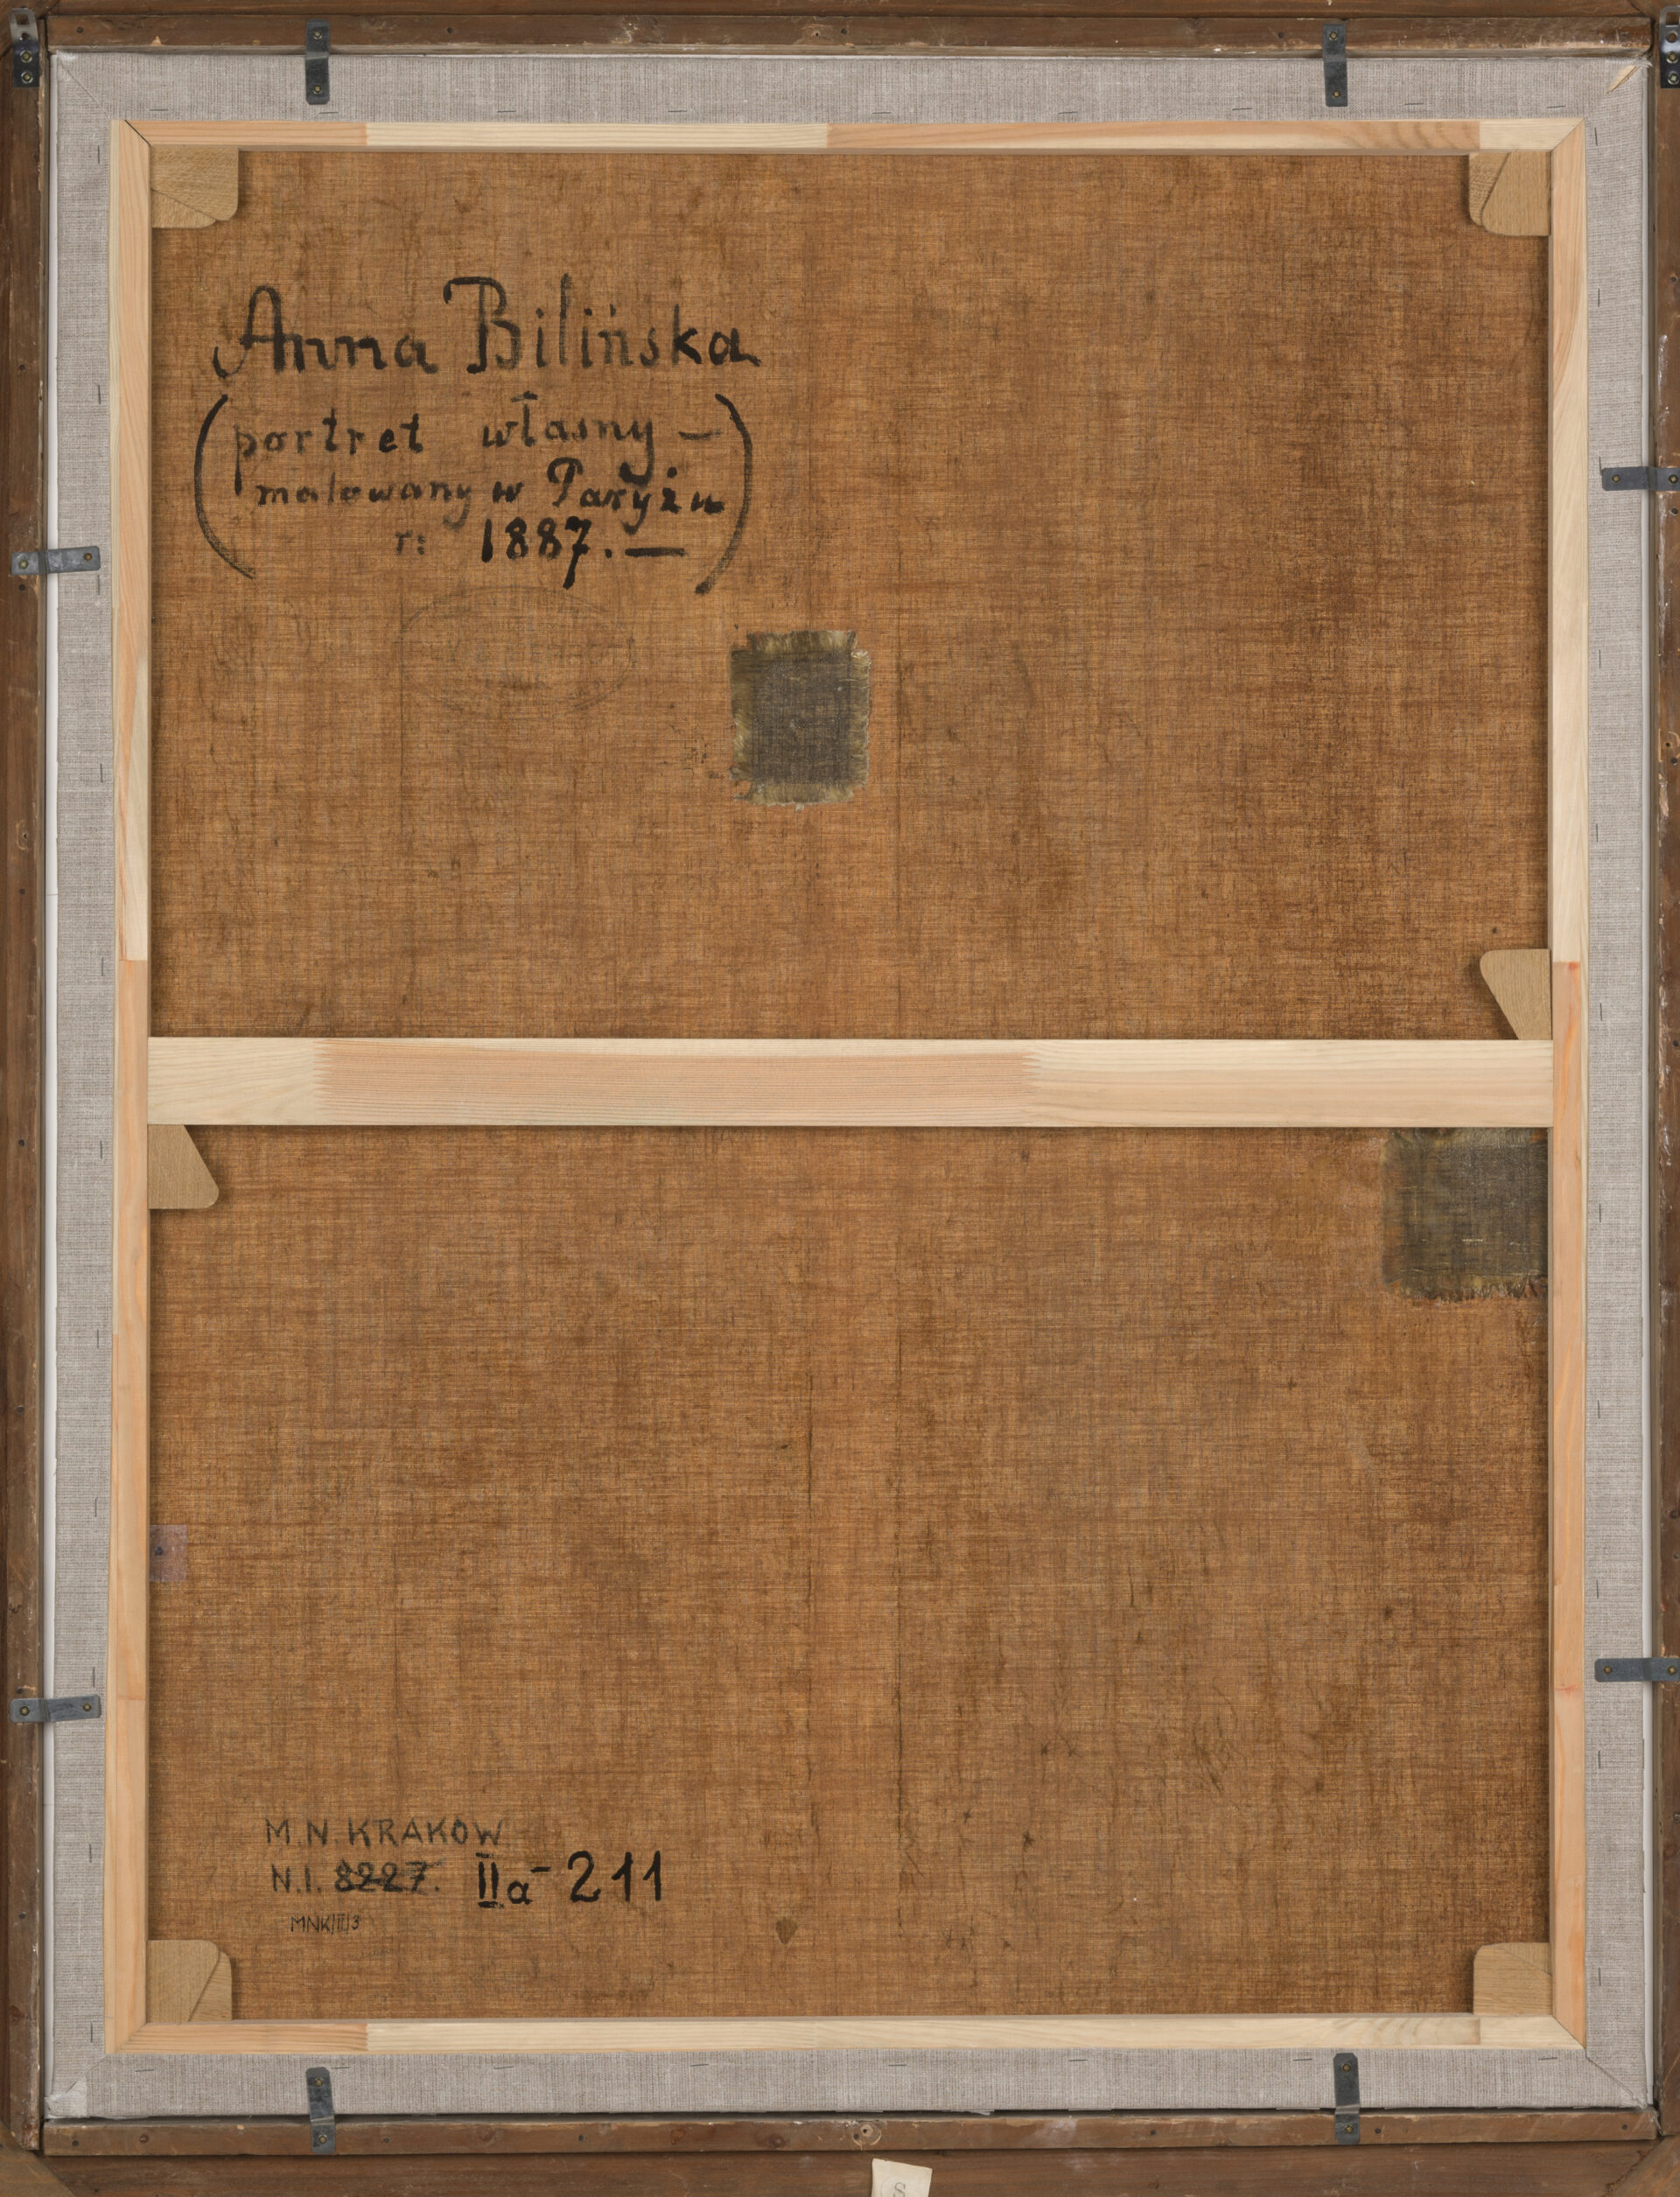 Anna Bilińska
(portret własny —
malowany w Paryżu
r: 1887. —)
M.N. KRAKÓW
N.I. 8227. IIa - 211
MNK/II/3
S